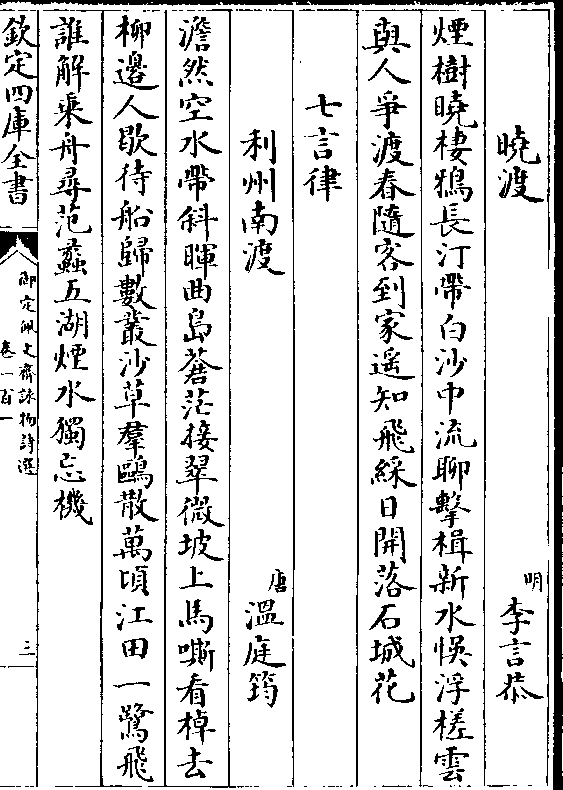 曉渡
明
李言恭
煙樹曉棲鴉長汀帶白沙中流聊擊楫新水悞浮槎雲
與人爭渡春隨客到家遥知飛綵日開落石城花
七言律
利州南渡
唐
溫庭筠
澹然空水帶斜暉曲島蒼茫接翠微坡上馬嘶看棹去
柳邊人歇待船歸數叢沙草羣鷗散萬頃江田一鷺飛
誰解乘舟尋范蠡五湖煙水獨忘機
欽定四庫全書
御定佩文齋詠物詩選
卷一百一
三